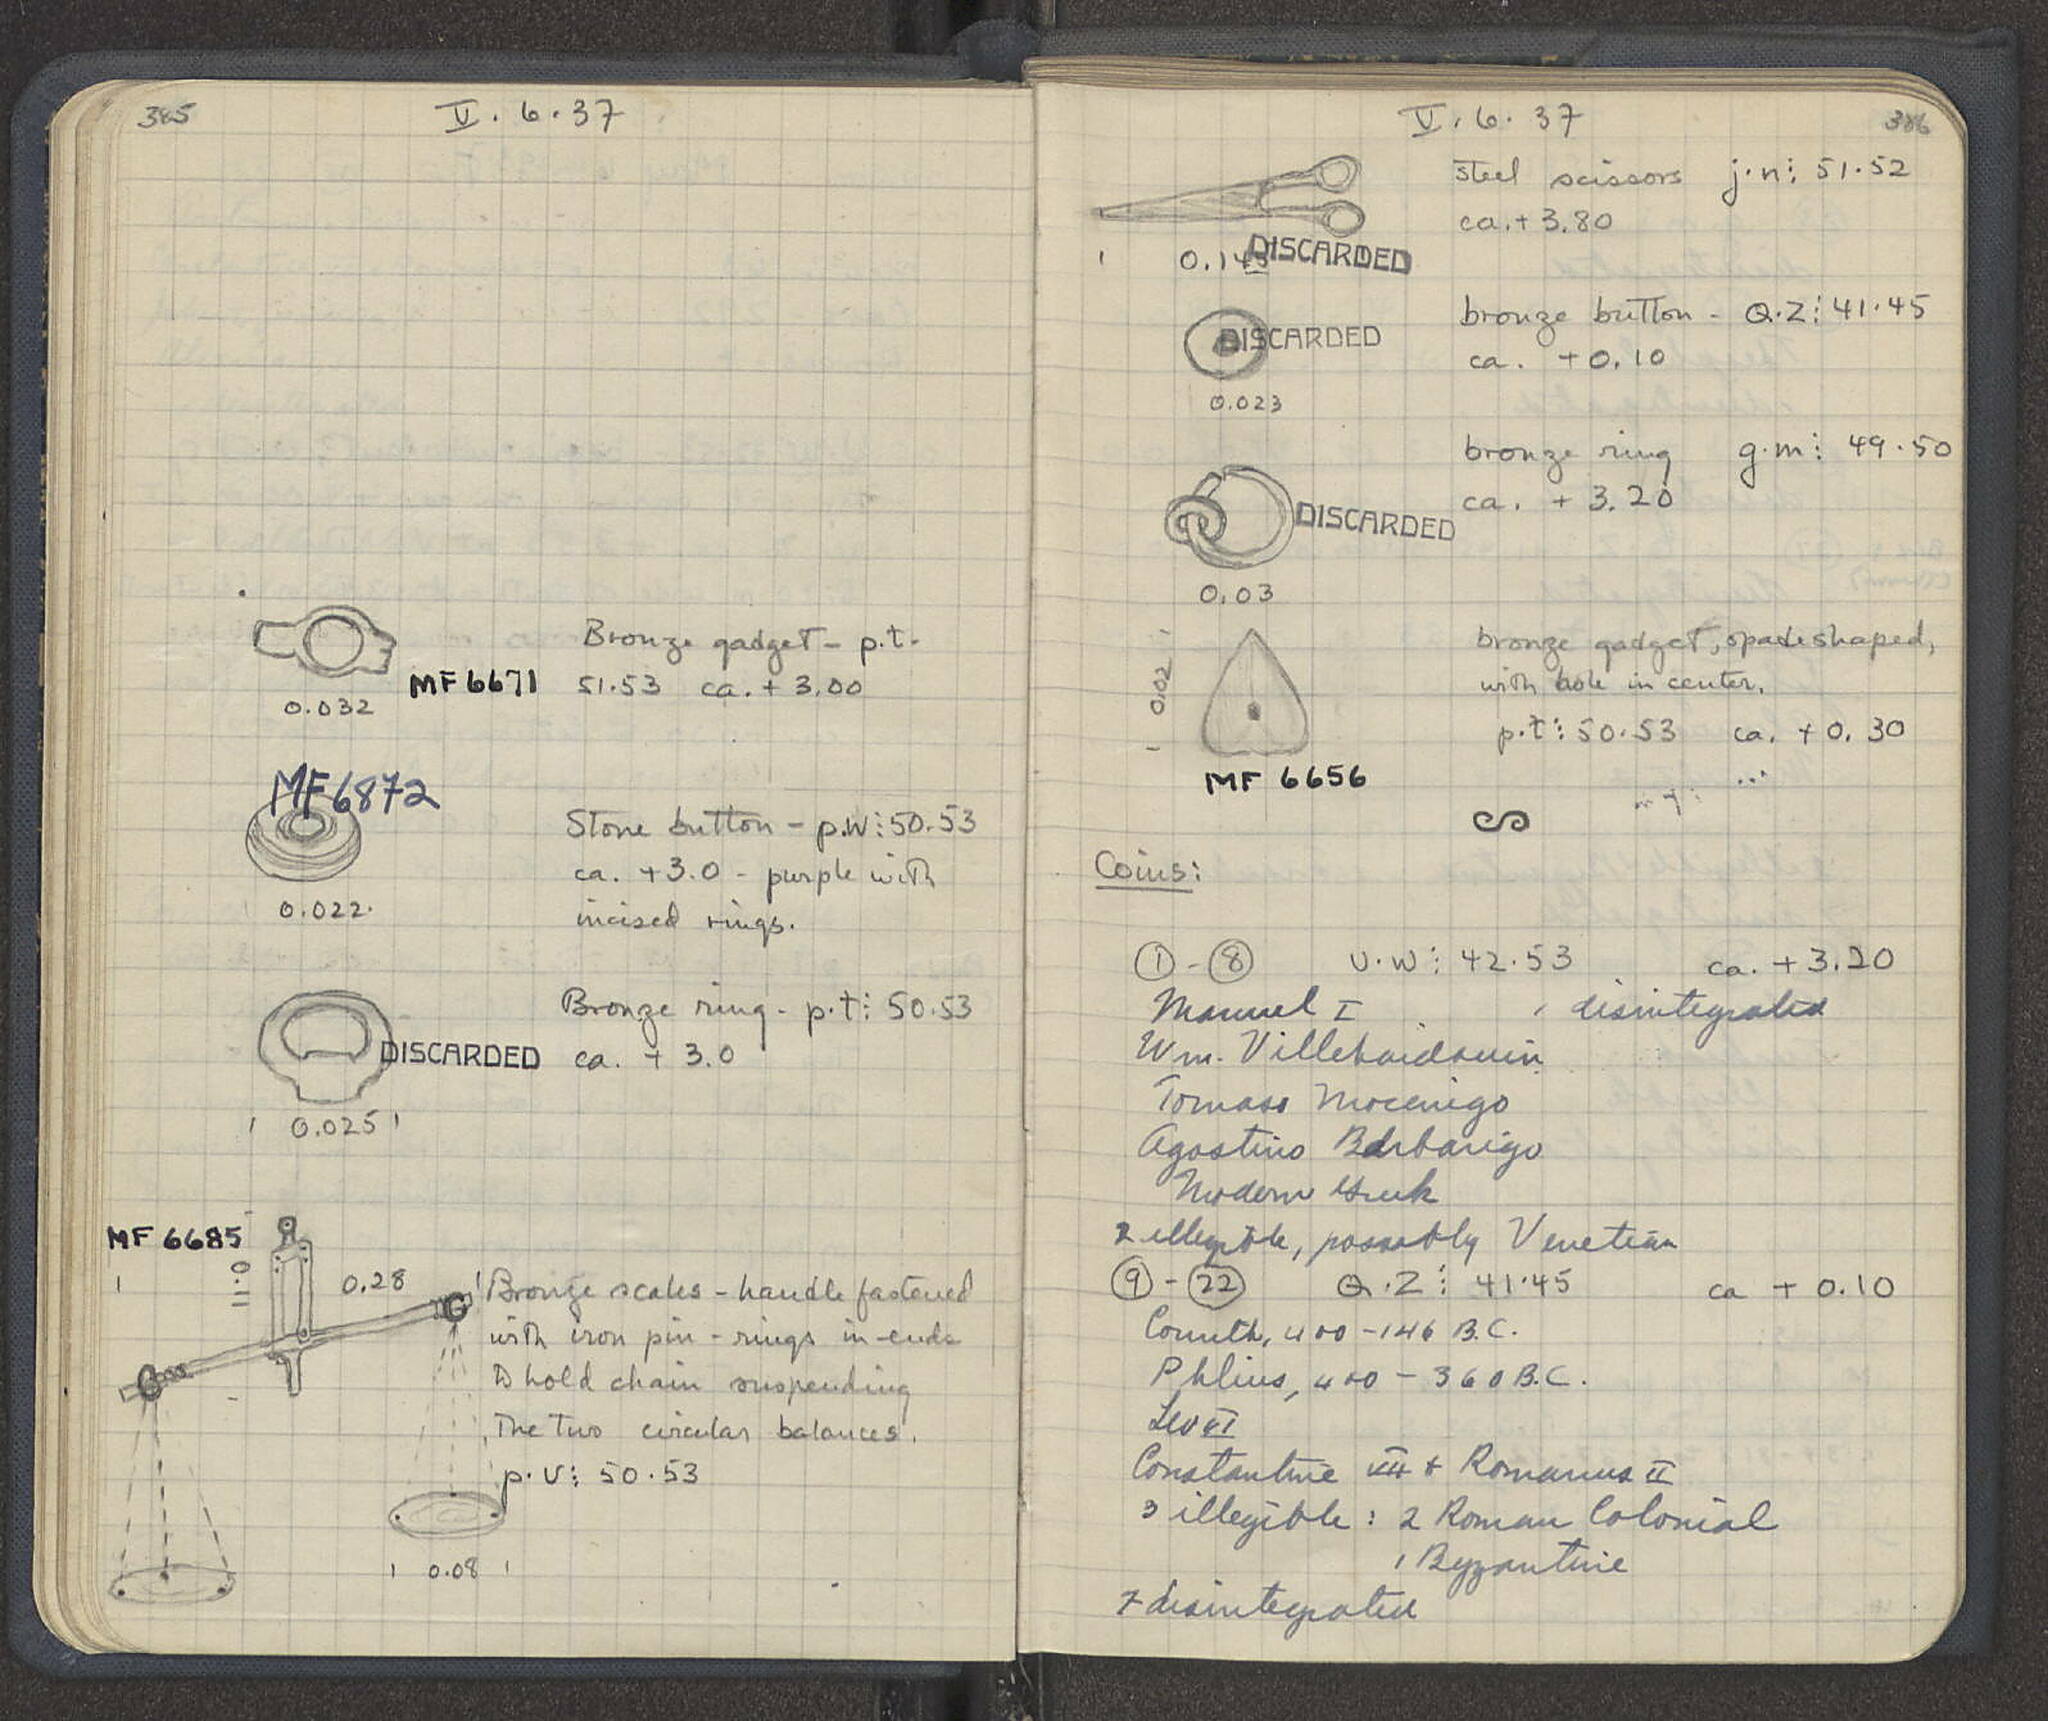 385
V. 6. 37
0.032
MF 6671
Bronze gadget - p.t.
51.53 ca. + 3.00
MF 6872
0.022
Stone button - p.W⋮50.53
ca. +3.0 - purple with
incised rings.
DISCARDED
0.025
Bronze ring - p.t⋮50.53
ca. + 3.0
MF 6685
0.11
0.28
0.08
Bronze scales - handle fastened
with iron pin - rings in ends
to hold chain suspending
the two circular balances.
p.V⋮ 50.53
V. 6. 37
386
0.145
DISCARDED
steel scissors j.n⋮ 51.52
ca. + 3.80
DISCARDED
0.023
bronze button - Q.Z⋮ 41.45
ca. +0.10
DISCARDED
0.03
bronze ring g.m⋮ 49.50
ca. + 3.20
0.02
MF 6656
bronze gadget, spade shaped,
with hole in center.
p.t⋮ 50.53 ca. + 0.30
Coins:
① - ⑧ U.W⋮ 42.53 ca. + 3.20
Manuel I 1 disintegrated
Wm. Villehardouin
Tomaso Mocenigo
Agostino Barbarigo
Modern Greek
2 illegible, possibly Venetian
⑨ - ㉒ Q.Z⋮ 41.45 ca + 0.10
Corinth, 400-146 B.C.
Phlius, 400 - 360 B.C.
Leo VI
Constantine VII + Romanus II
3 illegible: 2 Roman Colonial
1 Byzantine
7 disintegrated